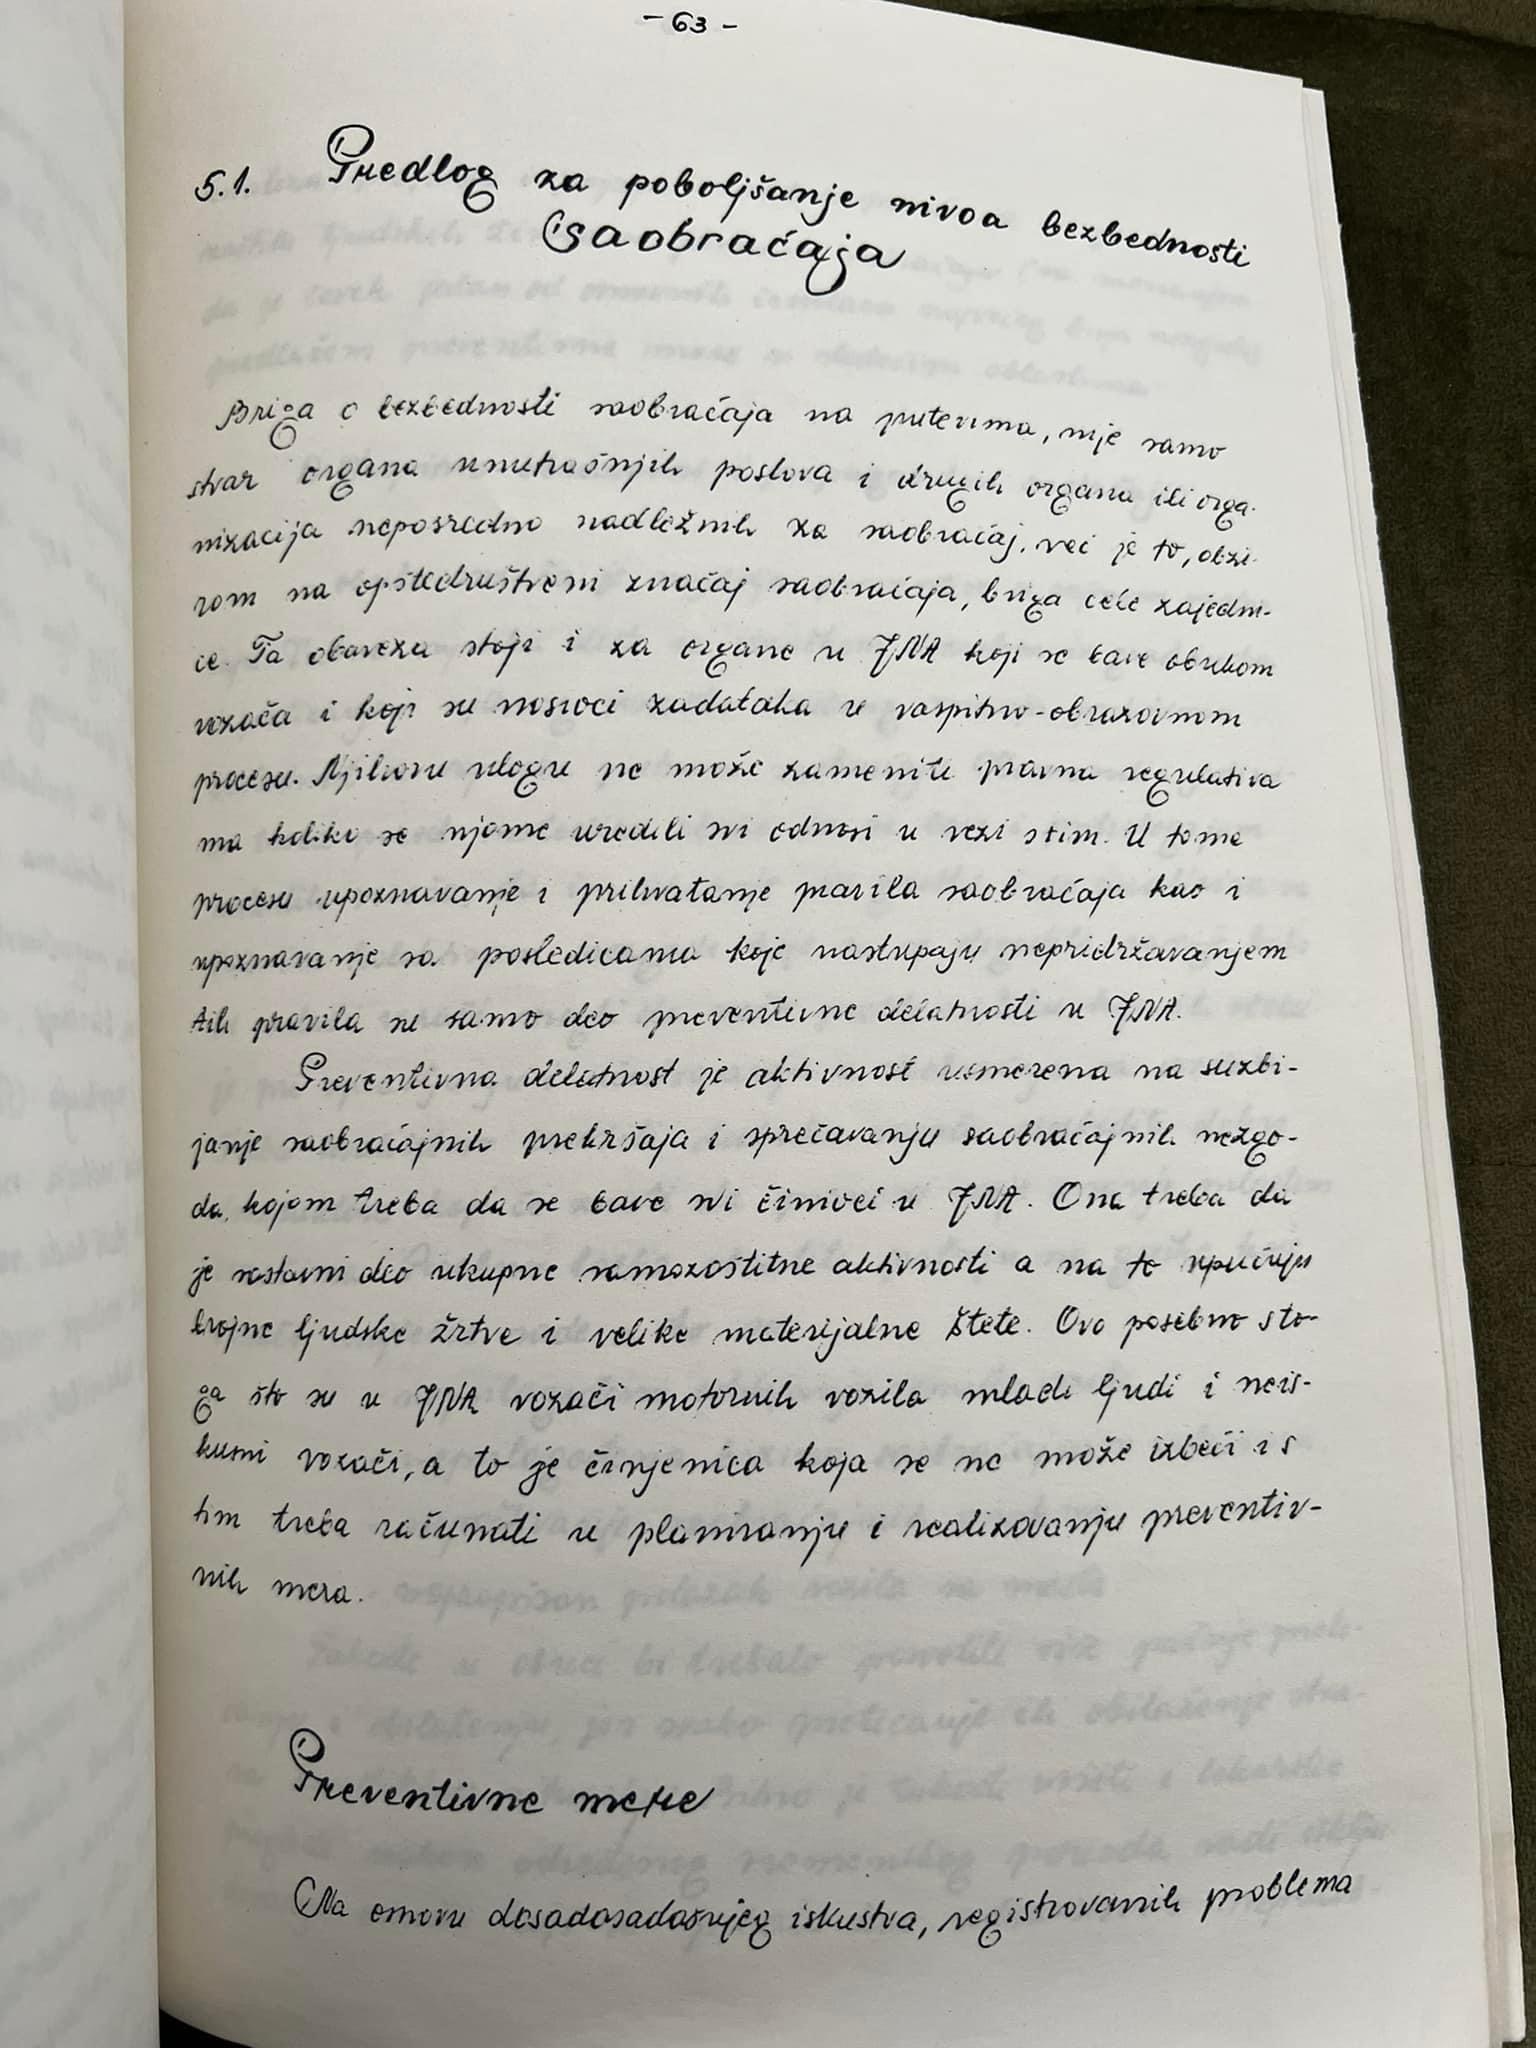 - 63 -
5.1. Predlog za poboljšanje nivoa bezbednosti
saobraćaja
Briga o bezbednosti saobraćaja na putevima, nije samo
stvar organa unutrašnjih poslova i drugih organa ili orga-
nizacija neposredno nadležnih za saobraćaj, već je to, obzi-
rom na opštedruštveni značaj saobraćaja, briga cele zajedni-
ce. Ta obaveza stoji i za organe u JNA koji se bave obukom
vozača i koji su nosioci zadataka u vaspitno-obrazovnom
procesu. Njihovu ulogu ne može zameniti pravna regulativa
ma koliko se njome uredili svi odnosi u vezi s tim. U tome
procesu upoznavanje i prihvatanje pravila saobraćaja kao i
upoznavanje sa posledicama koje nastupaju nepridržavanjem
tih pravila su samo deo preventivne delatnosti u JNA.
Preventivna delatnost je aktivnost usmerena na suzbi-
janje saobraćajnih prekršaja i sprečavanju saobraćajnih nezgo-
da, kojom treba da se bave svi činioci u JNA. Ona treba da
je sastavni deo ukupne samozaštitne aktivnosti a na to upućuju
brojne ljudske žrtve i velike materijalne štete. Ovo posebno sto-
ga što su u JNA vozači motornih vozila mladi ljudi i neis-
kusni vozači, a to je činjenica koja se ne može izbeći i s
tim treba računati u planiranju i realizovanju preventiv-
nih mera.
Preventivne mere
Na osnovu dosadosadašnjeg iskustva, registrovanih problema